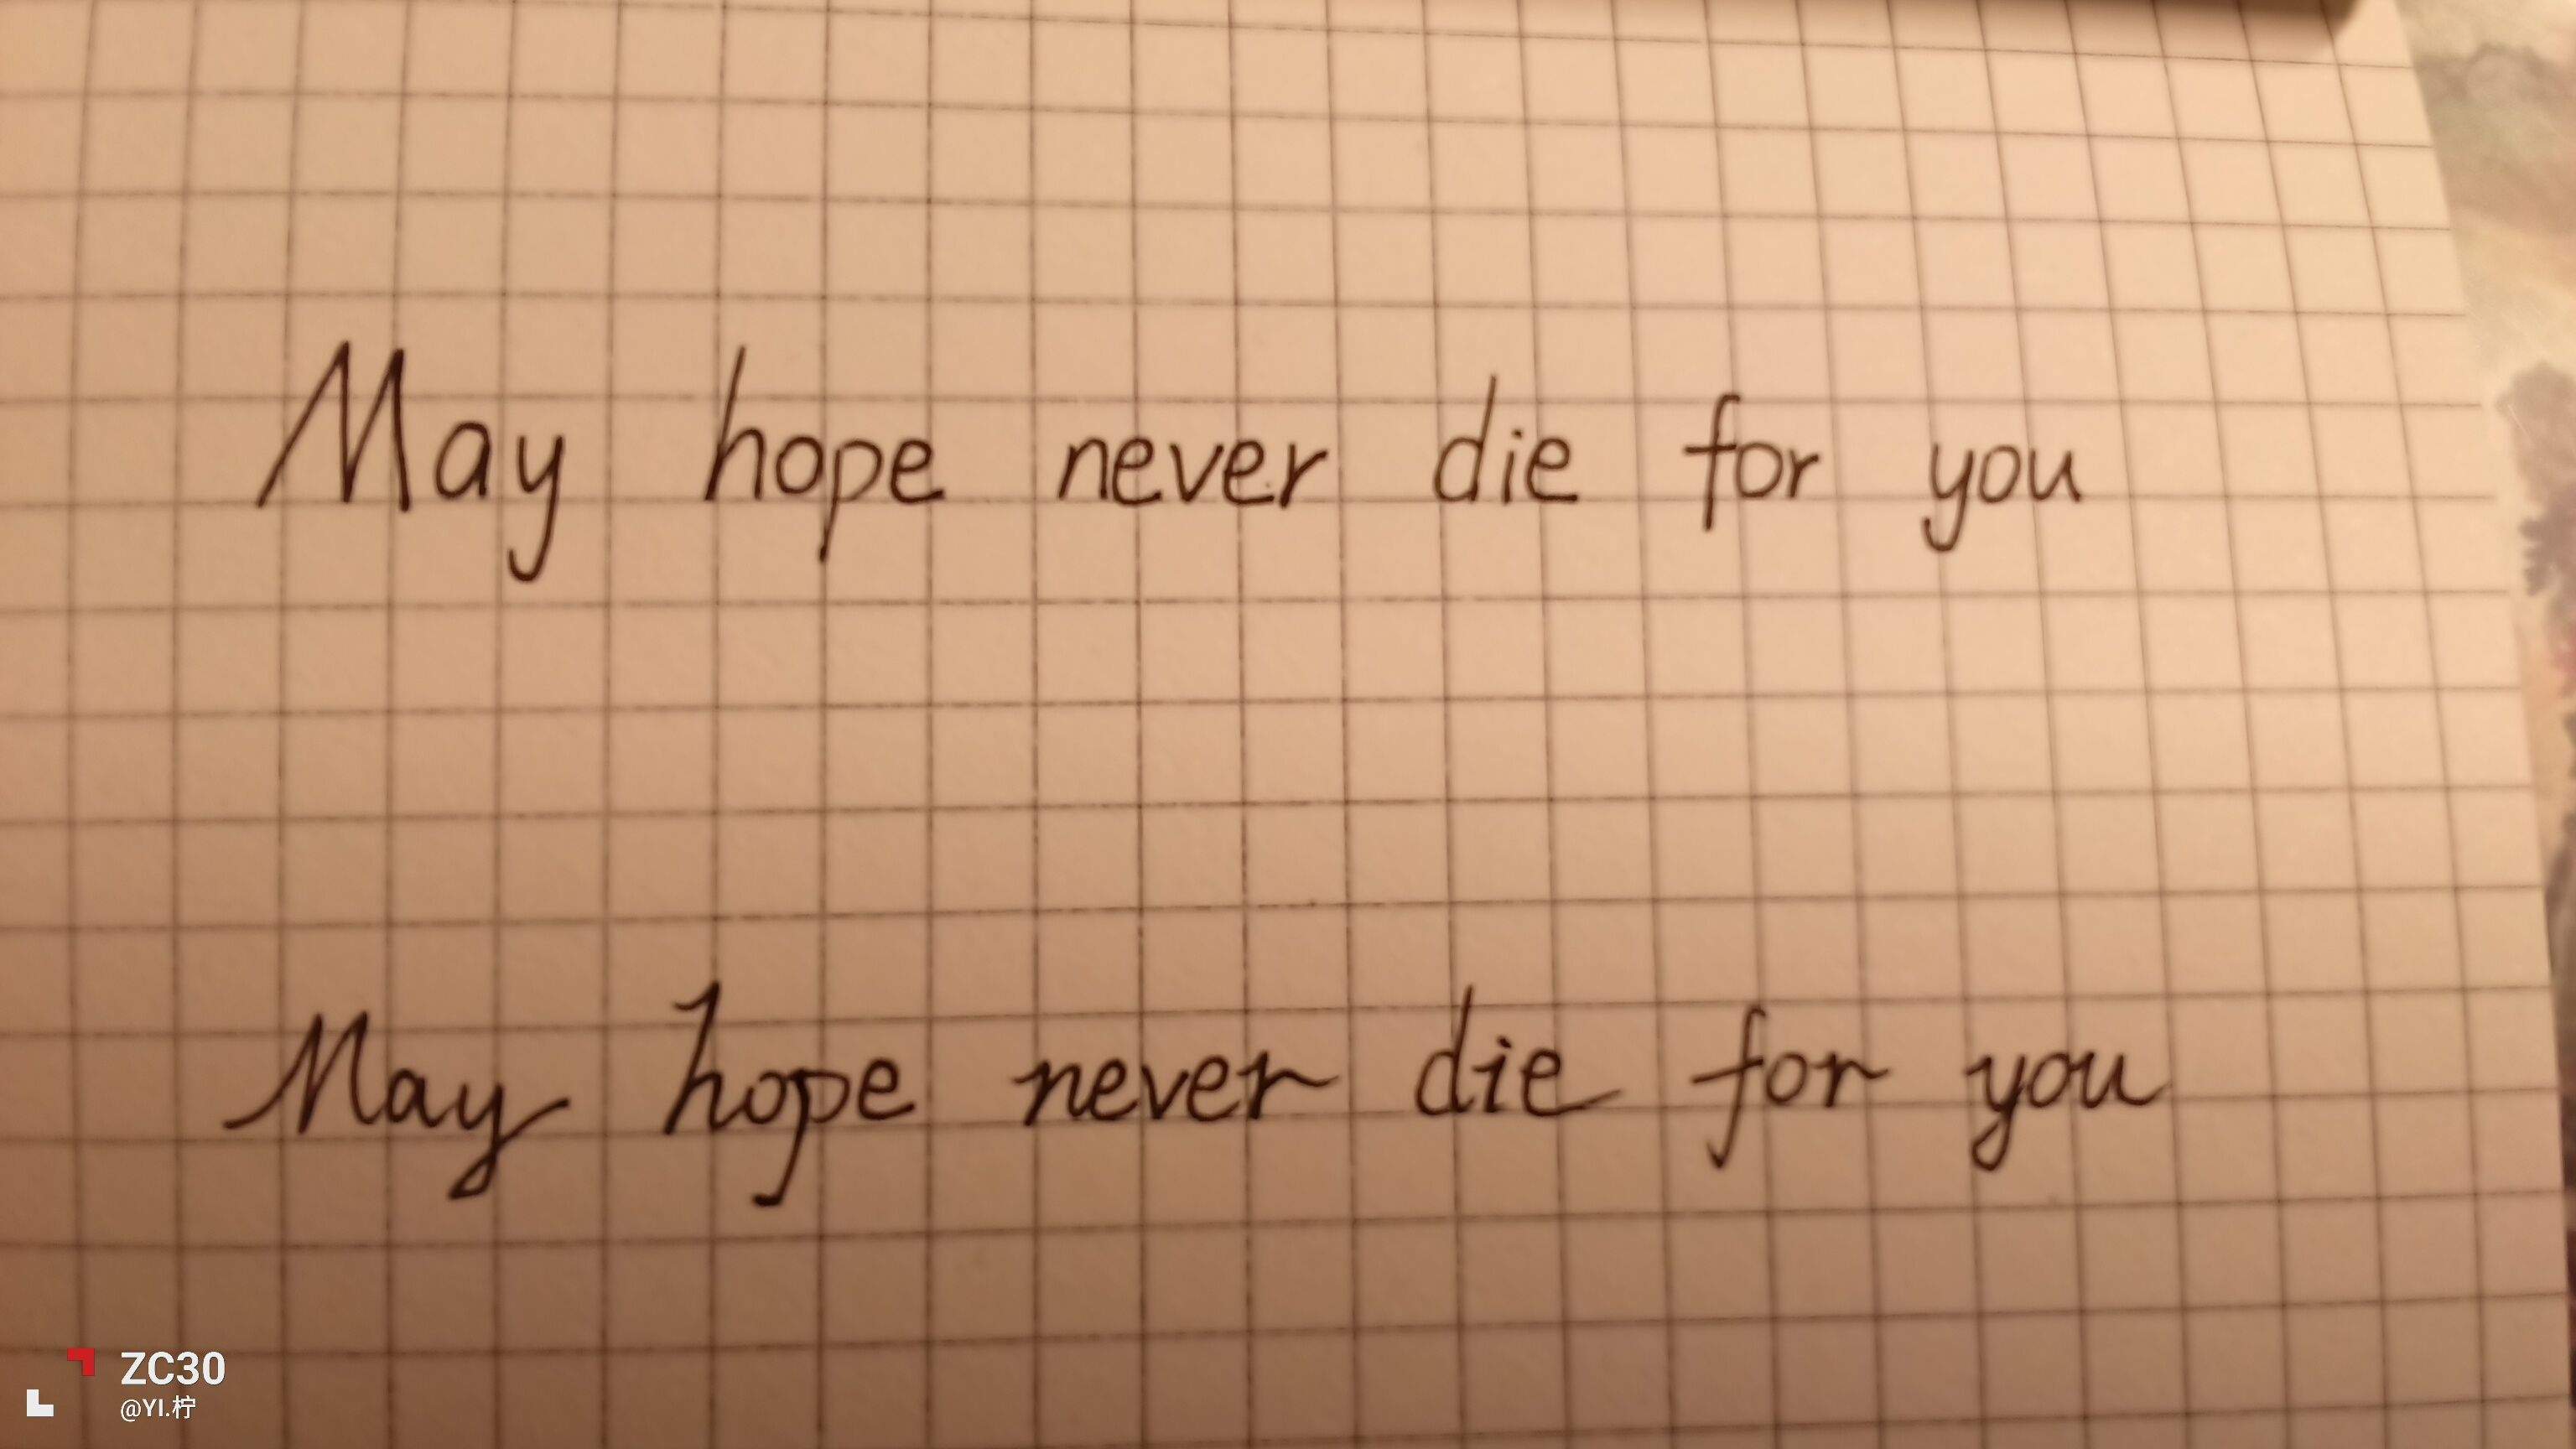 May hope never die for you
May hope never die for you
ZC30
@YI.柠